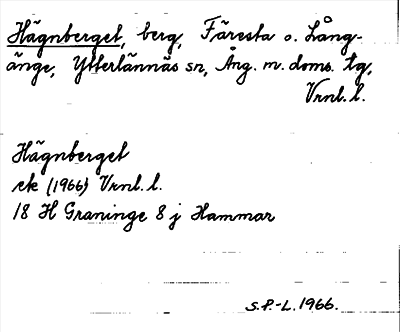 Hägnberget, berg, Färesta o. Lång-
änge, Ytterlännäs sn, Ång. m. doms. tg,
Vrnl. l.
Hägnberget
ek (1966) Vrnl. l.
18 H Graninge 8 j Hammar
S.P.-L. 1966.